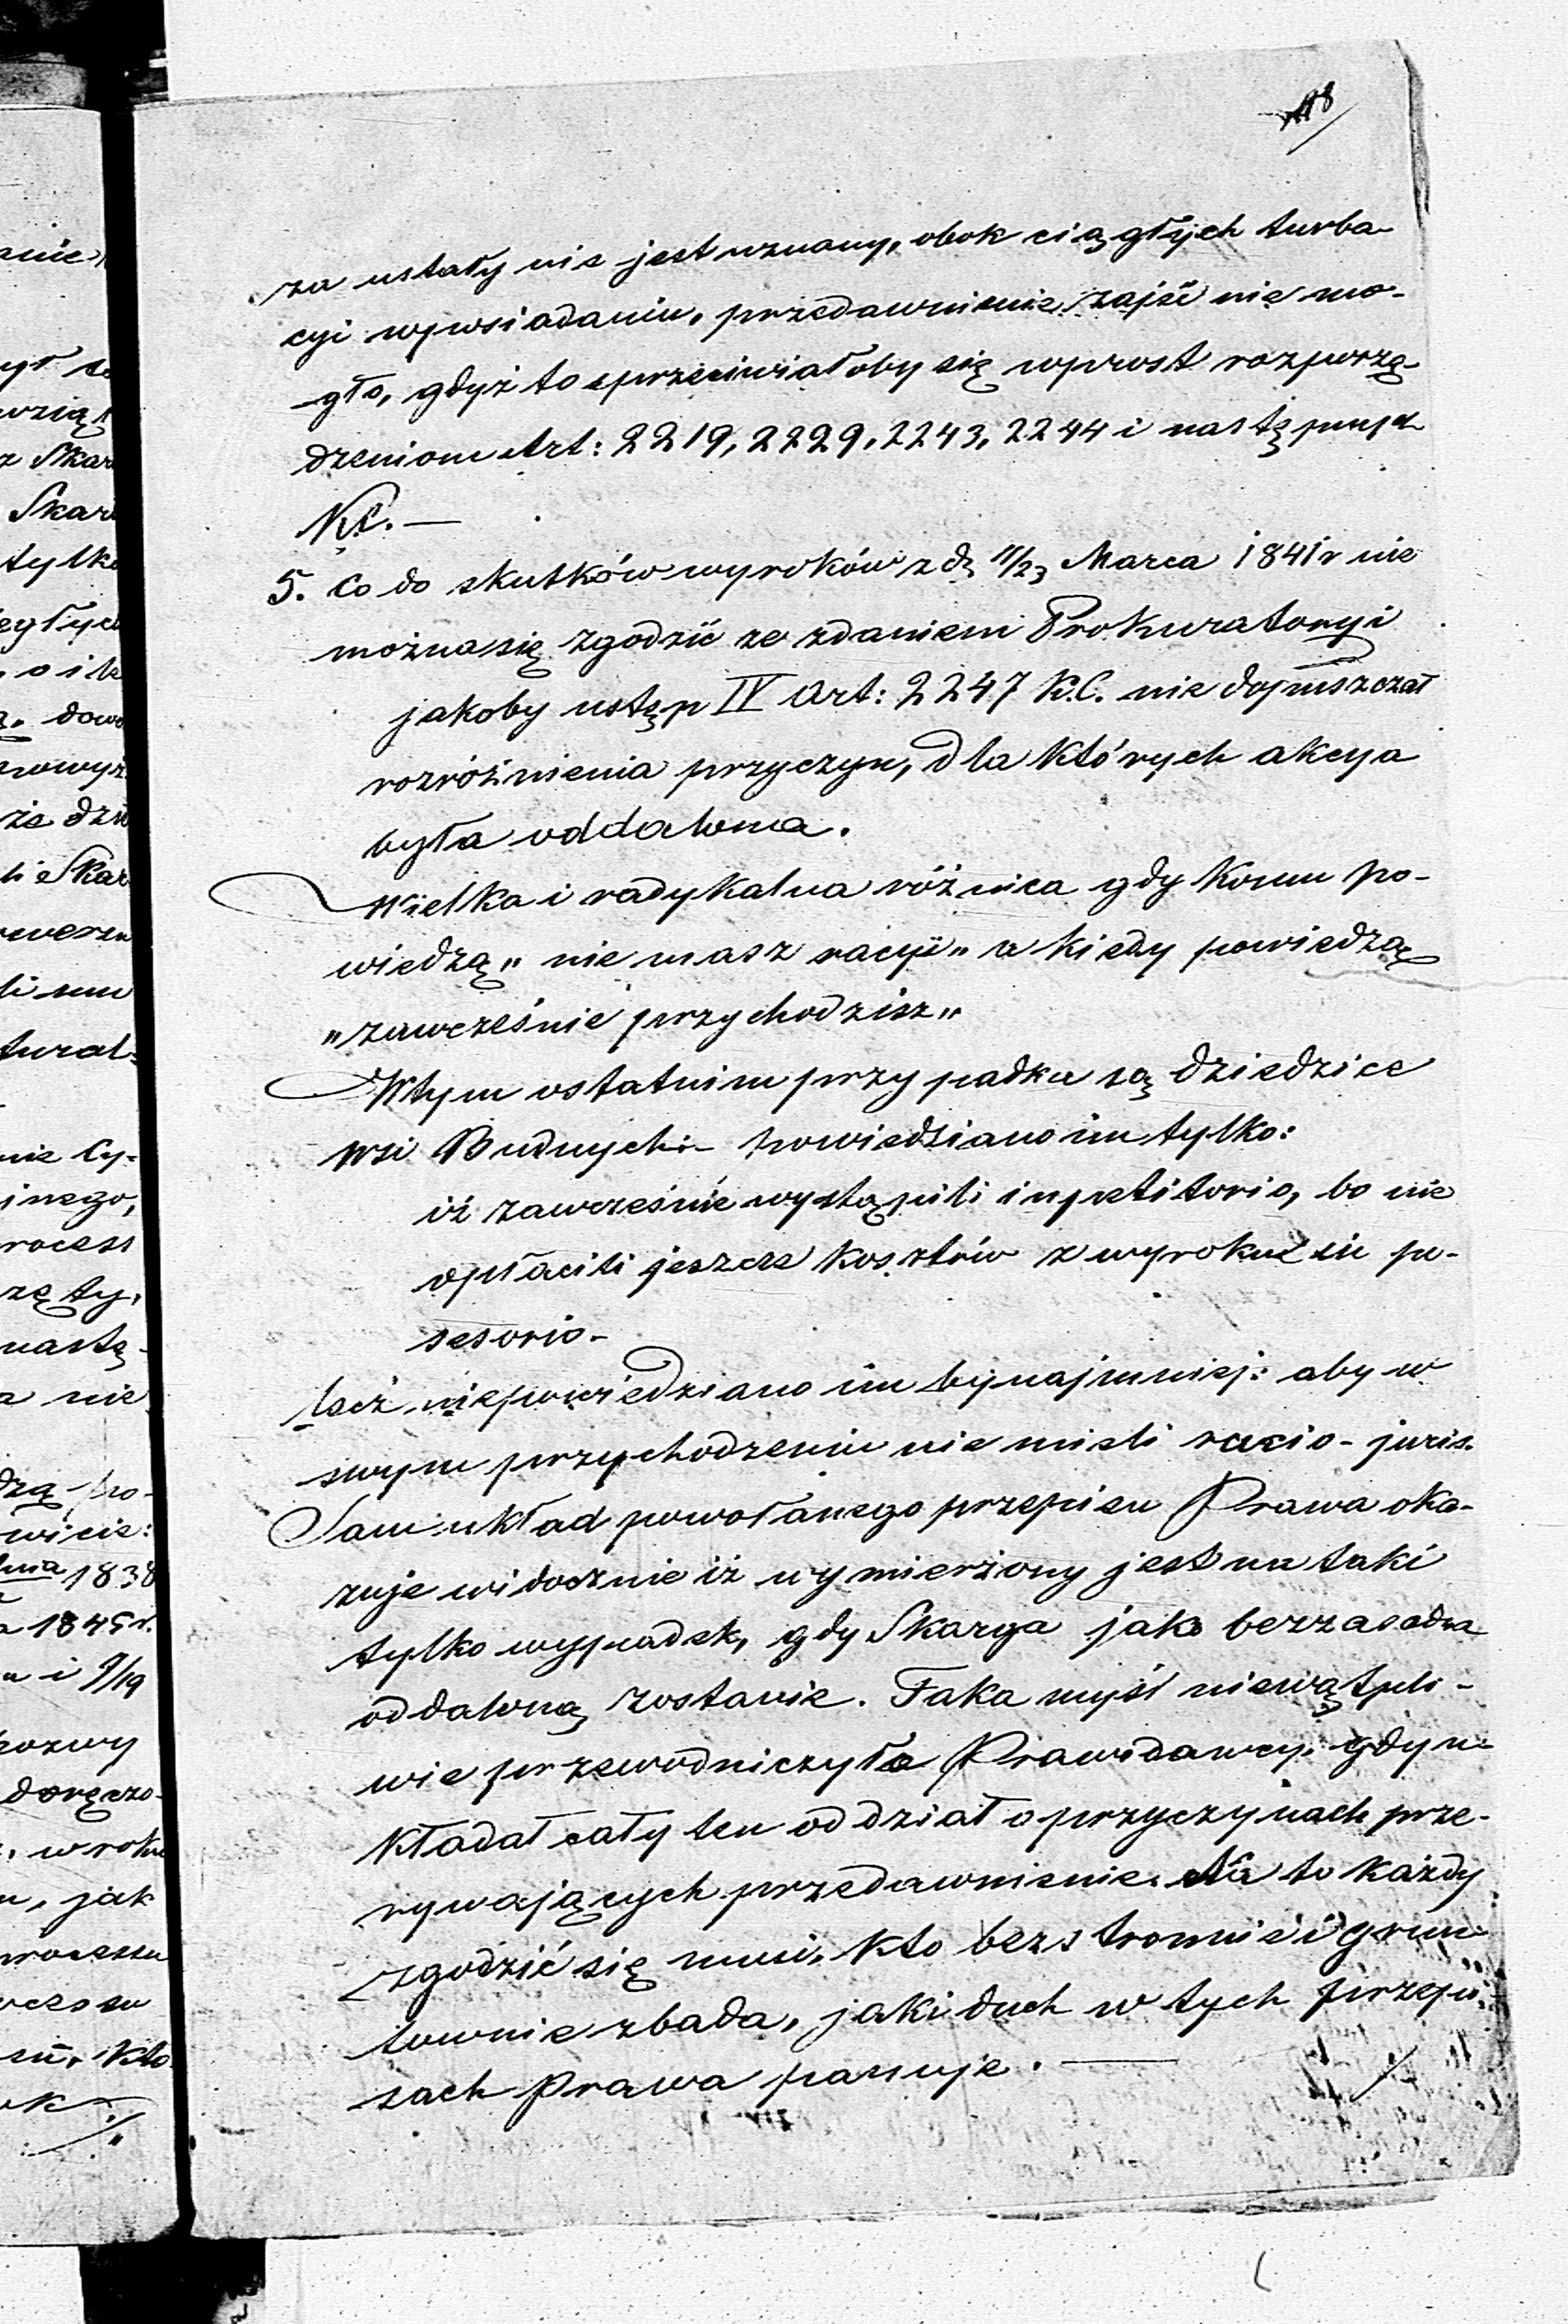 118
za ustały nie jest uznany, obok ciągłych turba-
cyi w posiadaniu, przedawnienie zajść nie mo-
gło, gdyż to sprzeciwiałoby się wprost rozporzą-
dzeniom Art: 2219, 2229, 2243, 2244 i następnych
K.C. —
5. Co do skutków wyroków z d. 11/23 Marca 1841 r nie
można się zgodzić ze zdaniem Prokuratoryi
jakoby ustęp IV Art: 2247 K.C. nie dopuszczał
rozróżnienia przyczyn, dla których akcya
była oddalona.
Wielka i radykalna różnica gdy komu po-
wiedzą „ nie masz racyi „ a kiedy powiedzą
„ zawcześnie przychodzisz „
W tym ostatnim przypadku są dziedzice
wsi Budnych - powiedziano im tylko:
iż zawcześnie wystąpili in petitorio, bo nie
opłacili jeszcze kosztów z wyroku in po-
sesorio -
lecz niepowiedziano im bynajmniej: aby w
swym przychodzeniu nie mieli racio - juris.
Sam układ powołanego przepisu Prawa oka-
zuje widocznie iż wymierzony jest na taki
tylko wypadek, gdy Skarga jako bezzasadna
oddaloną zostanie. Taka myśl niewątpli-
wie przewodniczyła Prawodawcy, gdy u-
kładał cały ten oddział o przyczynach prze-
rywających przedawnienie. Na to każdy
zgodzić się musi, kto bezstronnie i grun-
townie zbada, jaki duch w tych przepi-
sach Prawa panuje. —